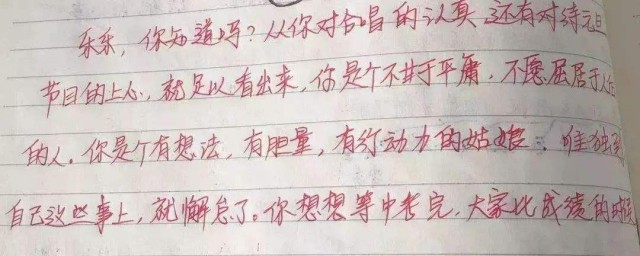 乐乐，你知道吗？从你对合唱的认真，还有对待元旦
节目的上心，就足以看出来，你是个不甘于平庸，不愿屈居于人后
的人。你是个有想法，有胆量，有行动力的姑娘，唯独到
自己这些事上，就懈怠了。你想想等中考完，大家比成绩的时候